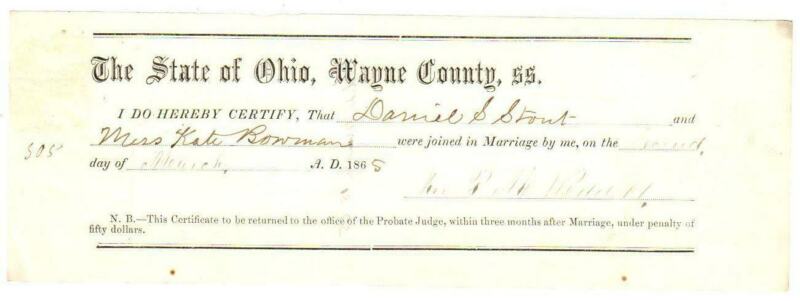 The State of Ohio, Wayne County, ss.
I DO HEREBY CERTIFY, That Daniel S Stout and
Miss Kate Bowman were joined in Marriage by me, on the
505
day of March A. D. 1865
N. B.—This Certificate to be returned to the office of the Probate Judge, within three months after Marriage, under penalty of
fifty dollars.